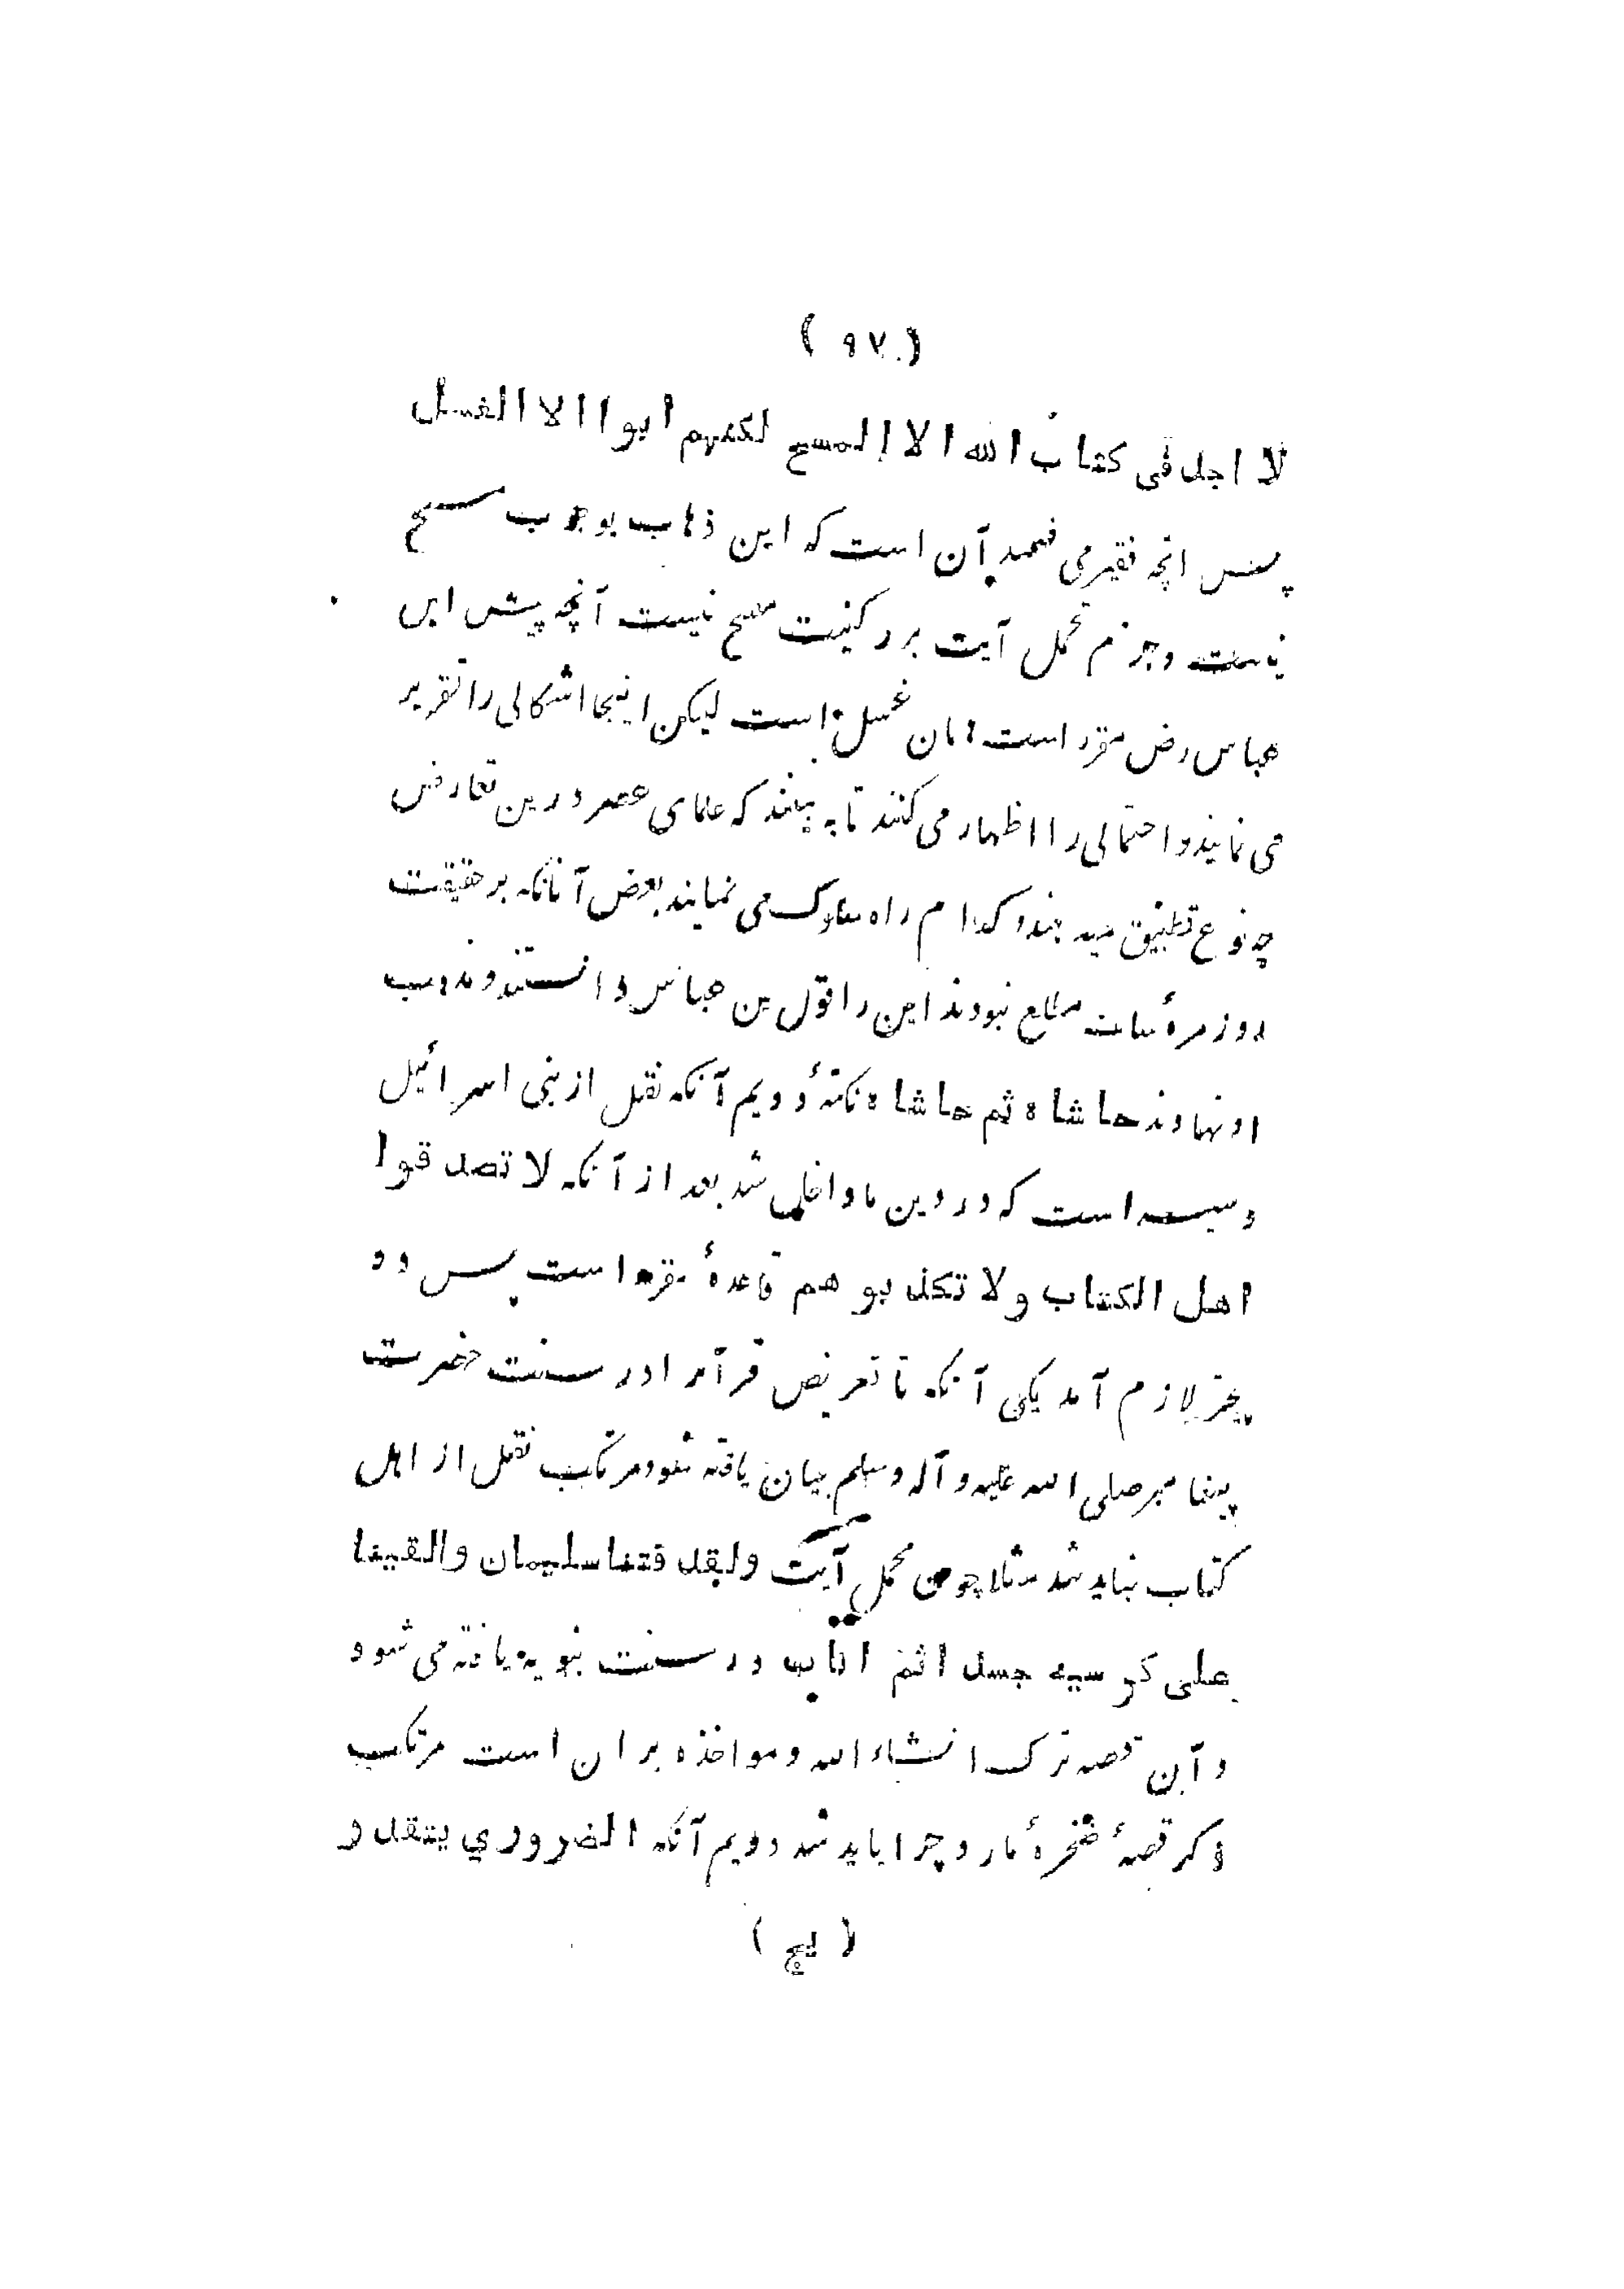 ( ٩٧ )
لا اجد في كتاب الله الا المسح لكنهم ابوا الا الغسل
پس انچه فقير می فهمد آن است که اين ذهاب بوجوب مسح
نيست وجزم بحمل آيت بر رکنيت مسح نيست آنچه پيش ابن
عباس رض مقرر است همان غسل است ليکن اينجا اشکالی را تقرير
می نمايند و احتمالی را اظهار می کنند تا به بينند که علمای عصر درين تعارض
چه نوع تطبيق ميدهند و کدام راه سلوک می نمايند بعض آنانکه بر حقيقت
روزمرهٔ سلف مطلع نبودند اين را قول بن عباس دانستند و مذهب
او نهادند حاشاه ثم حاشاه نکتهٔ دويم آنکه نقل از بنی اسرائيل
دسيسه است که در دين ما داخل شد بعد از آنکه لا تصدقوا
اهل الكتاب ولا تكذبوهم قاعدهٔ مقرره است پس دو
چيز لازم آمد يکی آنکه تا تعريض قرآن را در سنت حضرت
پيغامبر صلی الله عليه و آله و سلم بيان يافته شود مرتکب نقل از اهل
کتاب نبايد شد مثلا چون محمل آيت ولقد فتنا سليمان والقينا
على كرسيه جسدا ثم اناب در سنت نبويه يافته می شود
و آن قصه ترک انشاء الله و مواخذه بران است مرتکب
ذکر قصهٔ صخرهٔ مارد چرا بايد شد دويم آنکه الضروري يتقدر
( ليج )